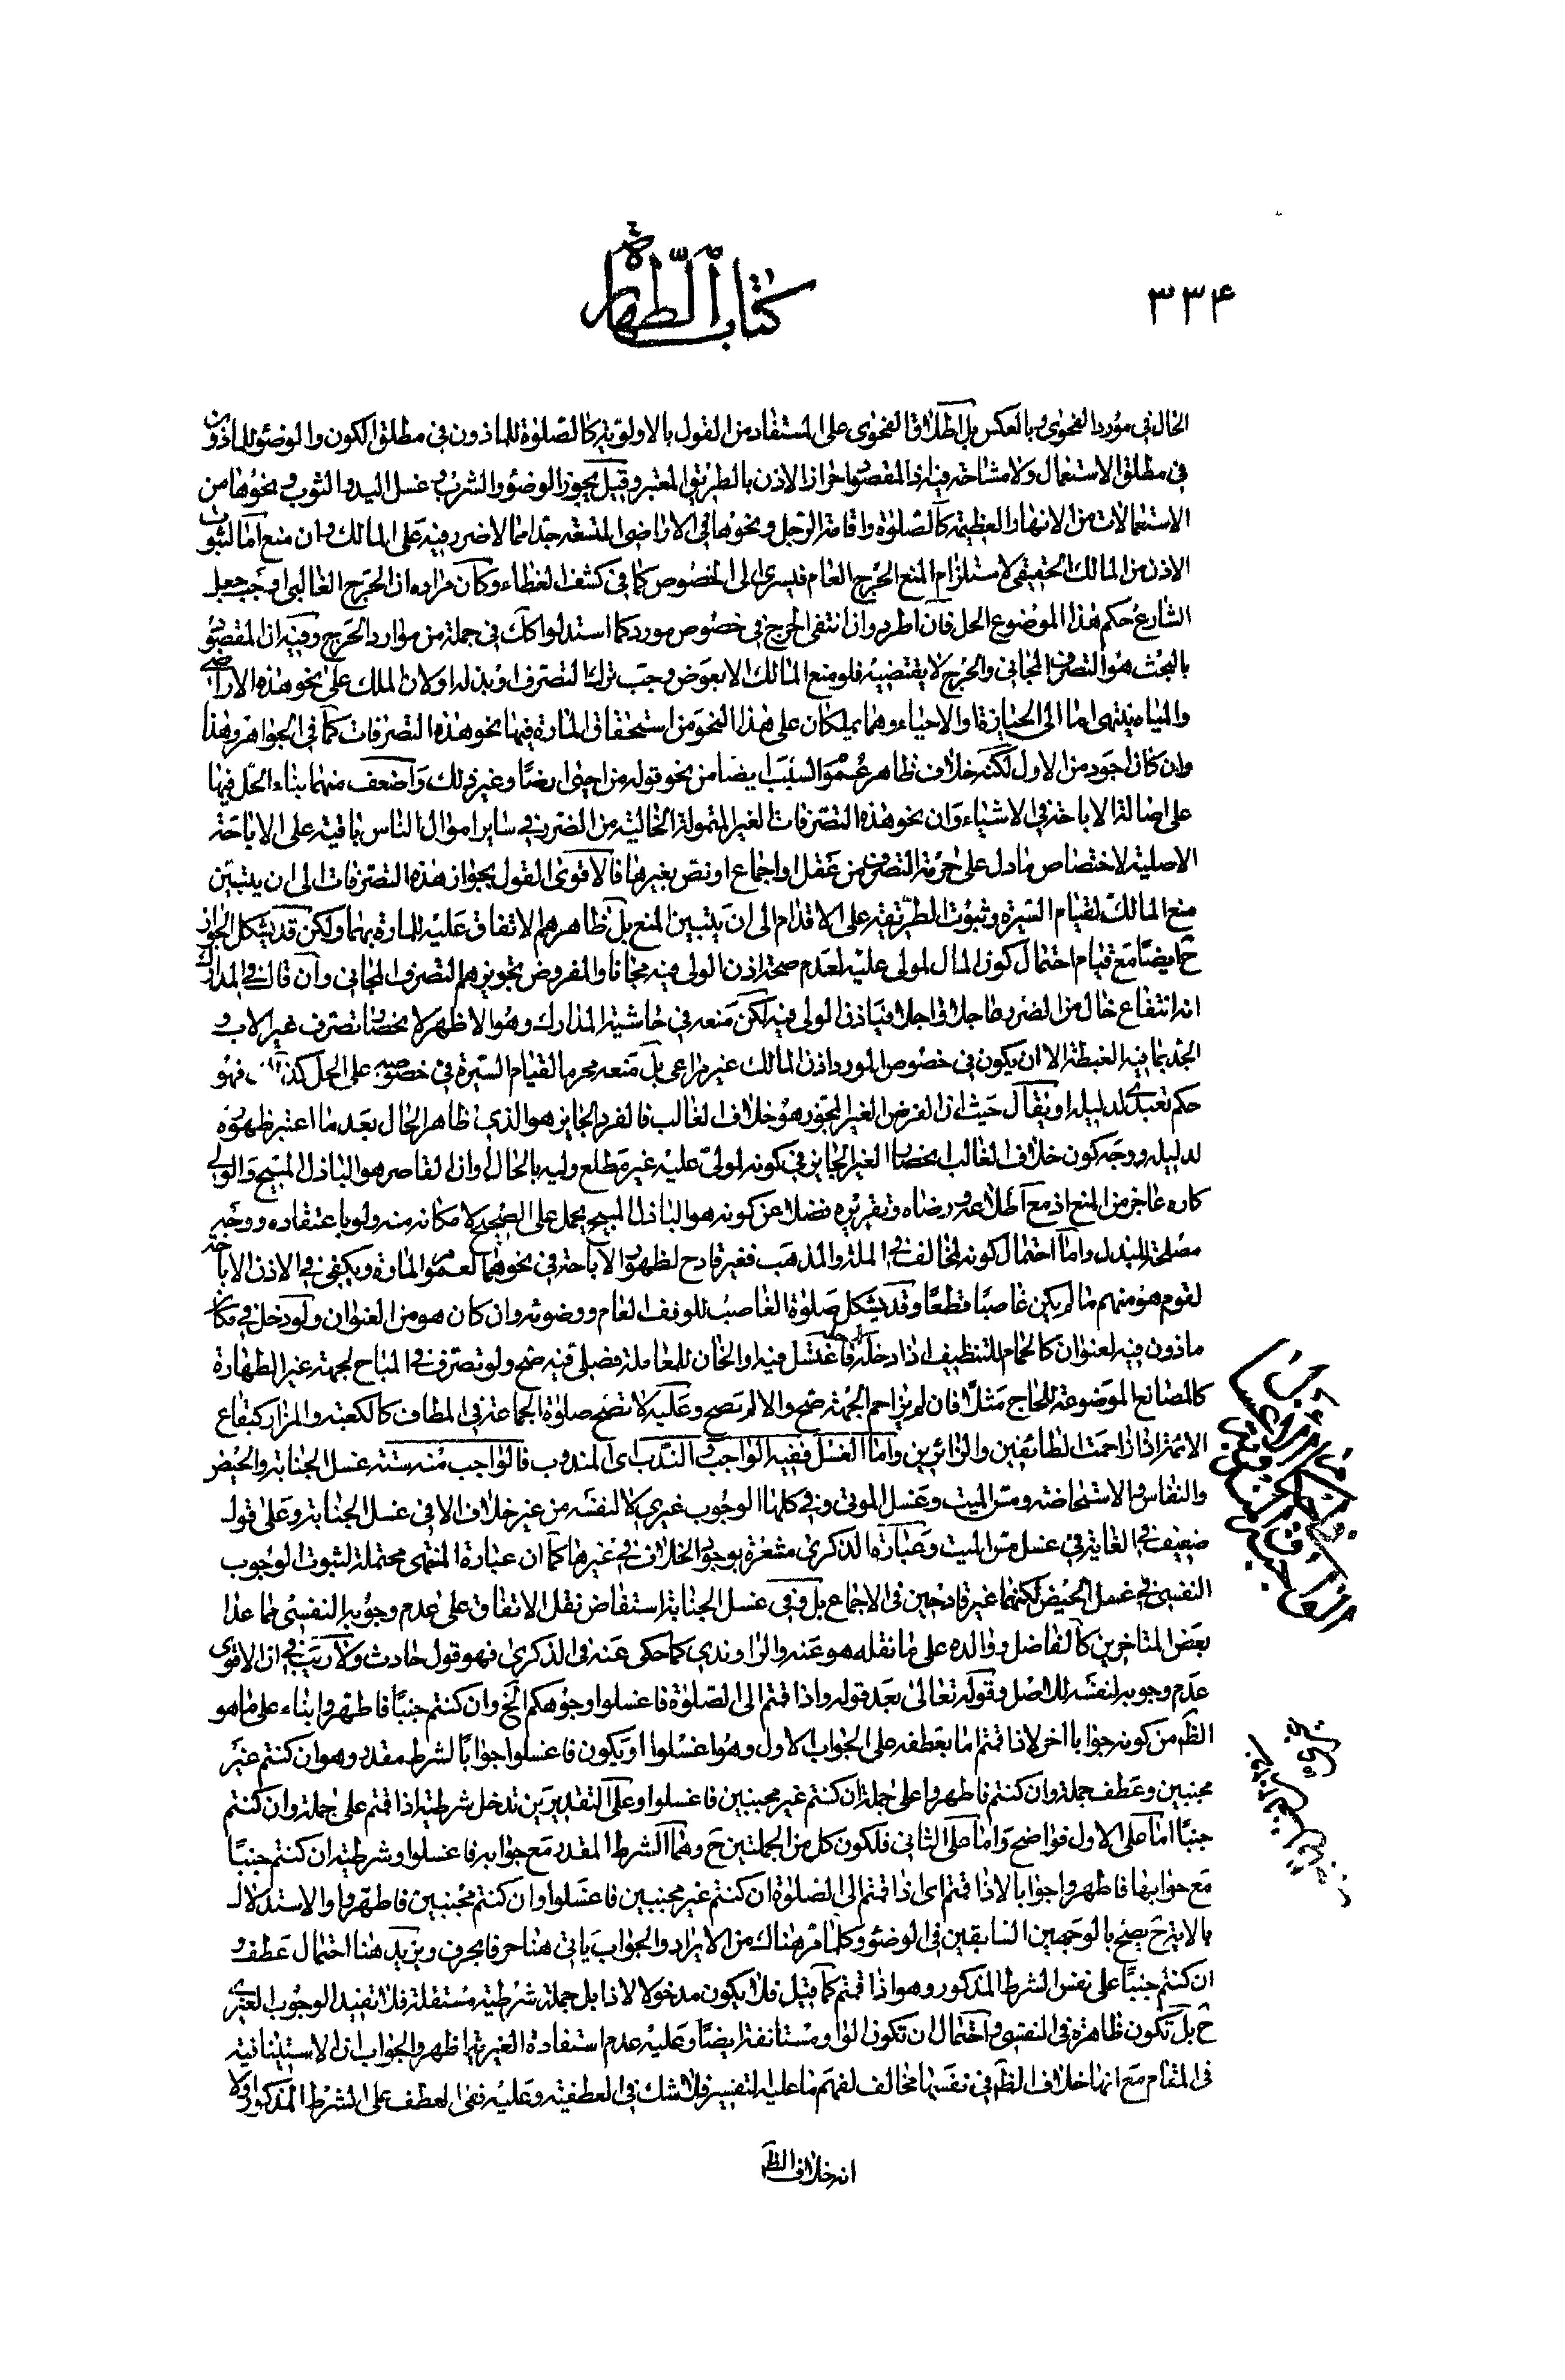 ٣٣۴
كتاب الطهارة
الحال في مورد الفحوى وبالعكس بل اطلاق الفحوى على المستفاد من القول بالاولوية كالصلوة للماذون في مطلق الكون والوضوء للماذون
في مطلق الاستعمال ولا مشاحة فيه اذ المقصود احراز الاذن بالطريق المعتبر وقيل يجوز الوضوء والشرب وغسل اليد والثوب ونحوها من
الاستعمالات من الانهار العظيمة كالصلوة واقامة الرحل ونحوها في الاراضي المتسعة جدا مما لا ضرر فيه على المالك وان منع اما لثبوت
الاذن من المالك الحقيقي لاستلزام المنع الحرج العام فيسري الى الخصوص كما في كشف الغطاء وكان مراده ان الحرج الغالبي اوجب جعل
الشارع حكم هذا الموضوع الحل فان اطرد وان انتفى الحرج في خصوص مورد كما استدلوا كك في جملة من موارد الحرج وفيه ان المقصود
بالبحث هو التصرف المجاني والحرج لا يقتضيه فلو منع المالك الا بعوض وجب ترك التصرف او بذله او لان الملك على نحو هذه الاراضي
والمياه ينتهي اما الى الحيازة او الاحياء وهما يملكان على هذا النحو من استحقاق المارة فيها نحو هذه التصرفات كما في الجواهر وهذا
وان كان اجود من الاول لكنه خلاف ظاهر عموم السبب ايضا من نحو قوله من احيى ارضا وغير ذلك واضعف منهما بناء الحل فيها
على اصالة الاباحة في الاشياء وان نحو هذه التصرفات الغير المتمولة الخالية من الضرر في ساير اموال الناس باقية على الاباحة
الاصلية لاختصاص ما دل على حرمة التصرف من عقل او اجماع او نص بغيرها فالاقوى القول بجواز هذه التصرفات الى ان يتبين
منع المالك لقيام السيرة وثبوت الطريقة على الاقدام الى ان يتبين المنع بل ظاهرهم الاتفاق عليه للمارة بهما ولكن قد يشكل الجواز
ح ايضا مع قيام احتمال كون المال لمولى عليه لعدم صحة اذن الولي فيه مجانا والمفروض تجويزهم التصرف المجاني وان قال في المدارك
انه انتفاع خال من الضرر عاجلا واجلا فياذن المولى فيه لكن منعه في حاشية المدارك وهو الاظهر لانحصار تصرف غير الاب و
الجد بما فيه الغبطة الا ان يكون في خصوص المورد اذن المالك غير مراعى بل منعه محرم القيام السيرة في خصوصه على الحل فهو
حكم تعبدي لدليله او يقال حيث ان الفرض الغير المجوز هو خلاف الغالب فالفرد الجايز هو الذي ظاهر الحال بعد ما اعتبر ظهوره
لدليله ووجه كون خلاف الغالب انحصار الغير الجايز في كونه لمولى عليه غير مطلع وليه بالحال او ان القاصر هو الباذل المبيح والولي
كاره عاجز من المنع اذ مع اطلاعه ورضاه وتقريره فضلا عن كونه هو الباذل المبيح يحمل على الصحيح لامكانه منه ولو باعتقاده ووجهه
مصلحة للبذل واما احتمال كونه لمخالف في الملة والمذهب فغير قادح لظهور الاباحة في نحوهما لعموم المارة ويكفي في الاذن الاباحة
لقوم هو منهم ما لم يكن غاصبا قطعا وقد يشكل صلوة الغاصب للوقف العام ووضوئه وان كان هو من العنوان ولو دخل في مكان
ماذون فيه لعنوان كالحمام للتنظيف اذا دخله فاغتسل فيه والخان للمعاملة فصلى فيه صح ولو تصرف في المباح لجهة غير الطهارة
كالمصانع الموضوعة للحاج مثلا فان لم يزاحم الجهة صح والا لم تصح وعليه لا تصح صلوة الجماعة في المطاف كالكعبة والمزار كبقاع
الائمة اذا زاحمت الطائفين والزائرين واما الغسل ففيه الواجب والندب اى المندوب فالواجب منه ستة غسل الجنابة والحيض
والنفاس والاستحاضة ومس الميت وغسل الموتى وفي كلها الوجوب غيري لا لنفسه من غير خلاف الا في غسل الجنابة وعلى قول
ضعيف في الغاية في غسل مس الميت وعبارة الذكرى مشعرة بوجود الخلاف في غيرها كما ان عبارة المنتهى محتملة لثبوت الوجوب
النفسي في غسل الحيض لكنهما غير قادحين في الاجماع بل وفي غسل الجنابة استفاض نقل الاتفاق على عدم وجوبه النفسي فما عدا
بعض المتاخرين كالفاضل ووالده على ما نقله هو عنه والراوندي كما حكى عنه في الذكرى فهو قول حادث ولا ريب في ان الاقوى
عدم وجوبه لنفسه للاصل وقوله تعالى بعد قوله واذا قمتم الى الصلوة فاغسلوا وجوهكم الخ وان كنتم جنبا فاطهروا بناء على ما هو
الظم من كونه جوابا اخر لاذا قمتم اما بعطفه على الجواب الاول وهو اغسلوا او يكون فاغسلوا جوابا لشرط مقدر وهو ان كنتم غير
مجنبين وعطف جملة وان كنتم فاطهروا على جملة ان كنتم غير مجنبين فاغسلوا وعلى التقديرين تدخل شرطية اذا قمتم على جملة وان كنتم
جنبا اما على الاول فواضح واما على الثاني فلكون كل من الجملتين ح وهما الشرط المقدر مع جوابه فاغسلوا وشرطية ان كنتم جنبا
مع جوابها فاطهروا جوابا لاذا قمتم اى اذا قمتم الى الصلوة ان كنتم غير مجنبين فاغسلوا وان كنتم مجنبين فاطهروا والاستدلال
بالاية ح يصح بالوجهين السابقين في الوضوء وكلما مر هناك من الايراد والجواب ياتي هنا حرفا بحرف ويزيد هنا احتمال عطف و
ان كنتم جنبا على نفس الشرط المذكور وهو اذا قمتم كما قيل فلا يكون مدخولا لاذا بل جملة شرطية مستقلة فلا تفيد الوجوب الغيري
ح بل تكون ظاهرة في النفسي واحتمال ان تكون الواو مستانفة ايضا وعليه عدم استفادة الغيرية اظهر والجواب ان الاستينافية
في المقام مع انها خلاف الظم في نفسها مخالف لفهم ما عليه التفسير فلا شك في العطفية وعليه ففي العطف على الشرط المذكور اولا
انه خلاف الظم